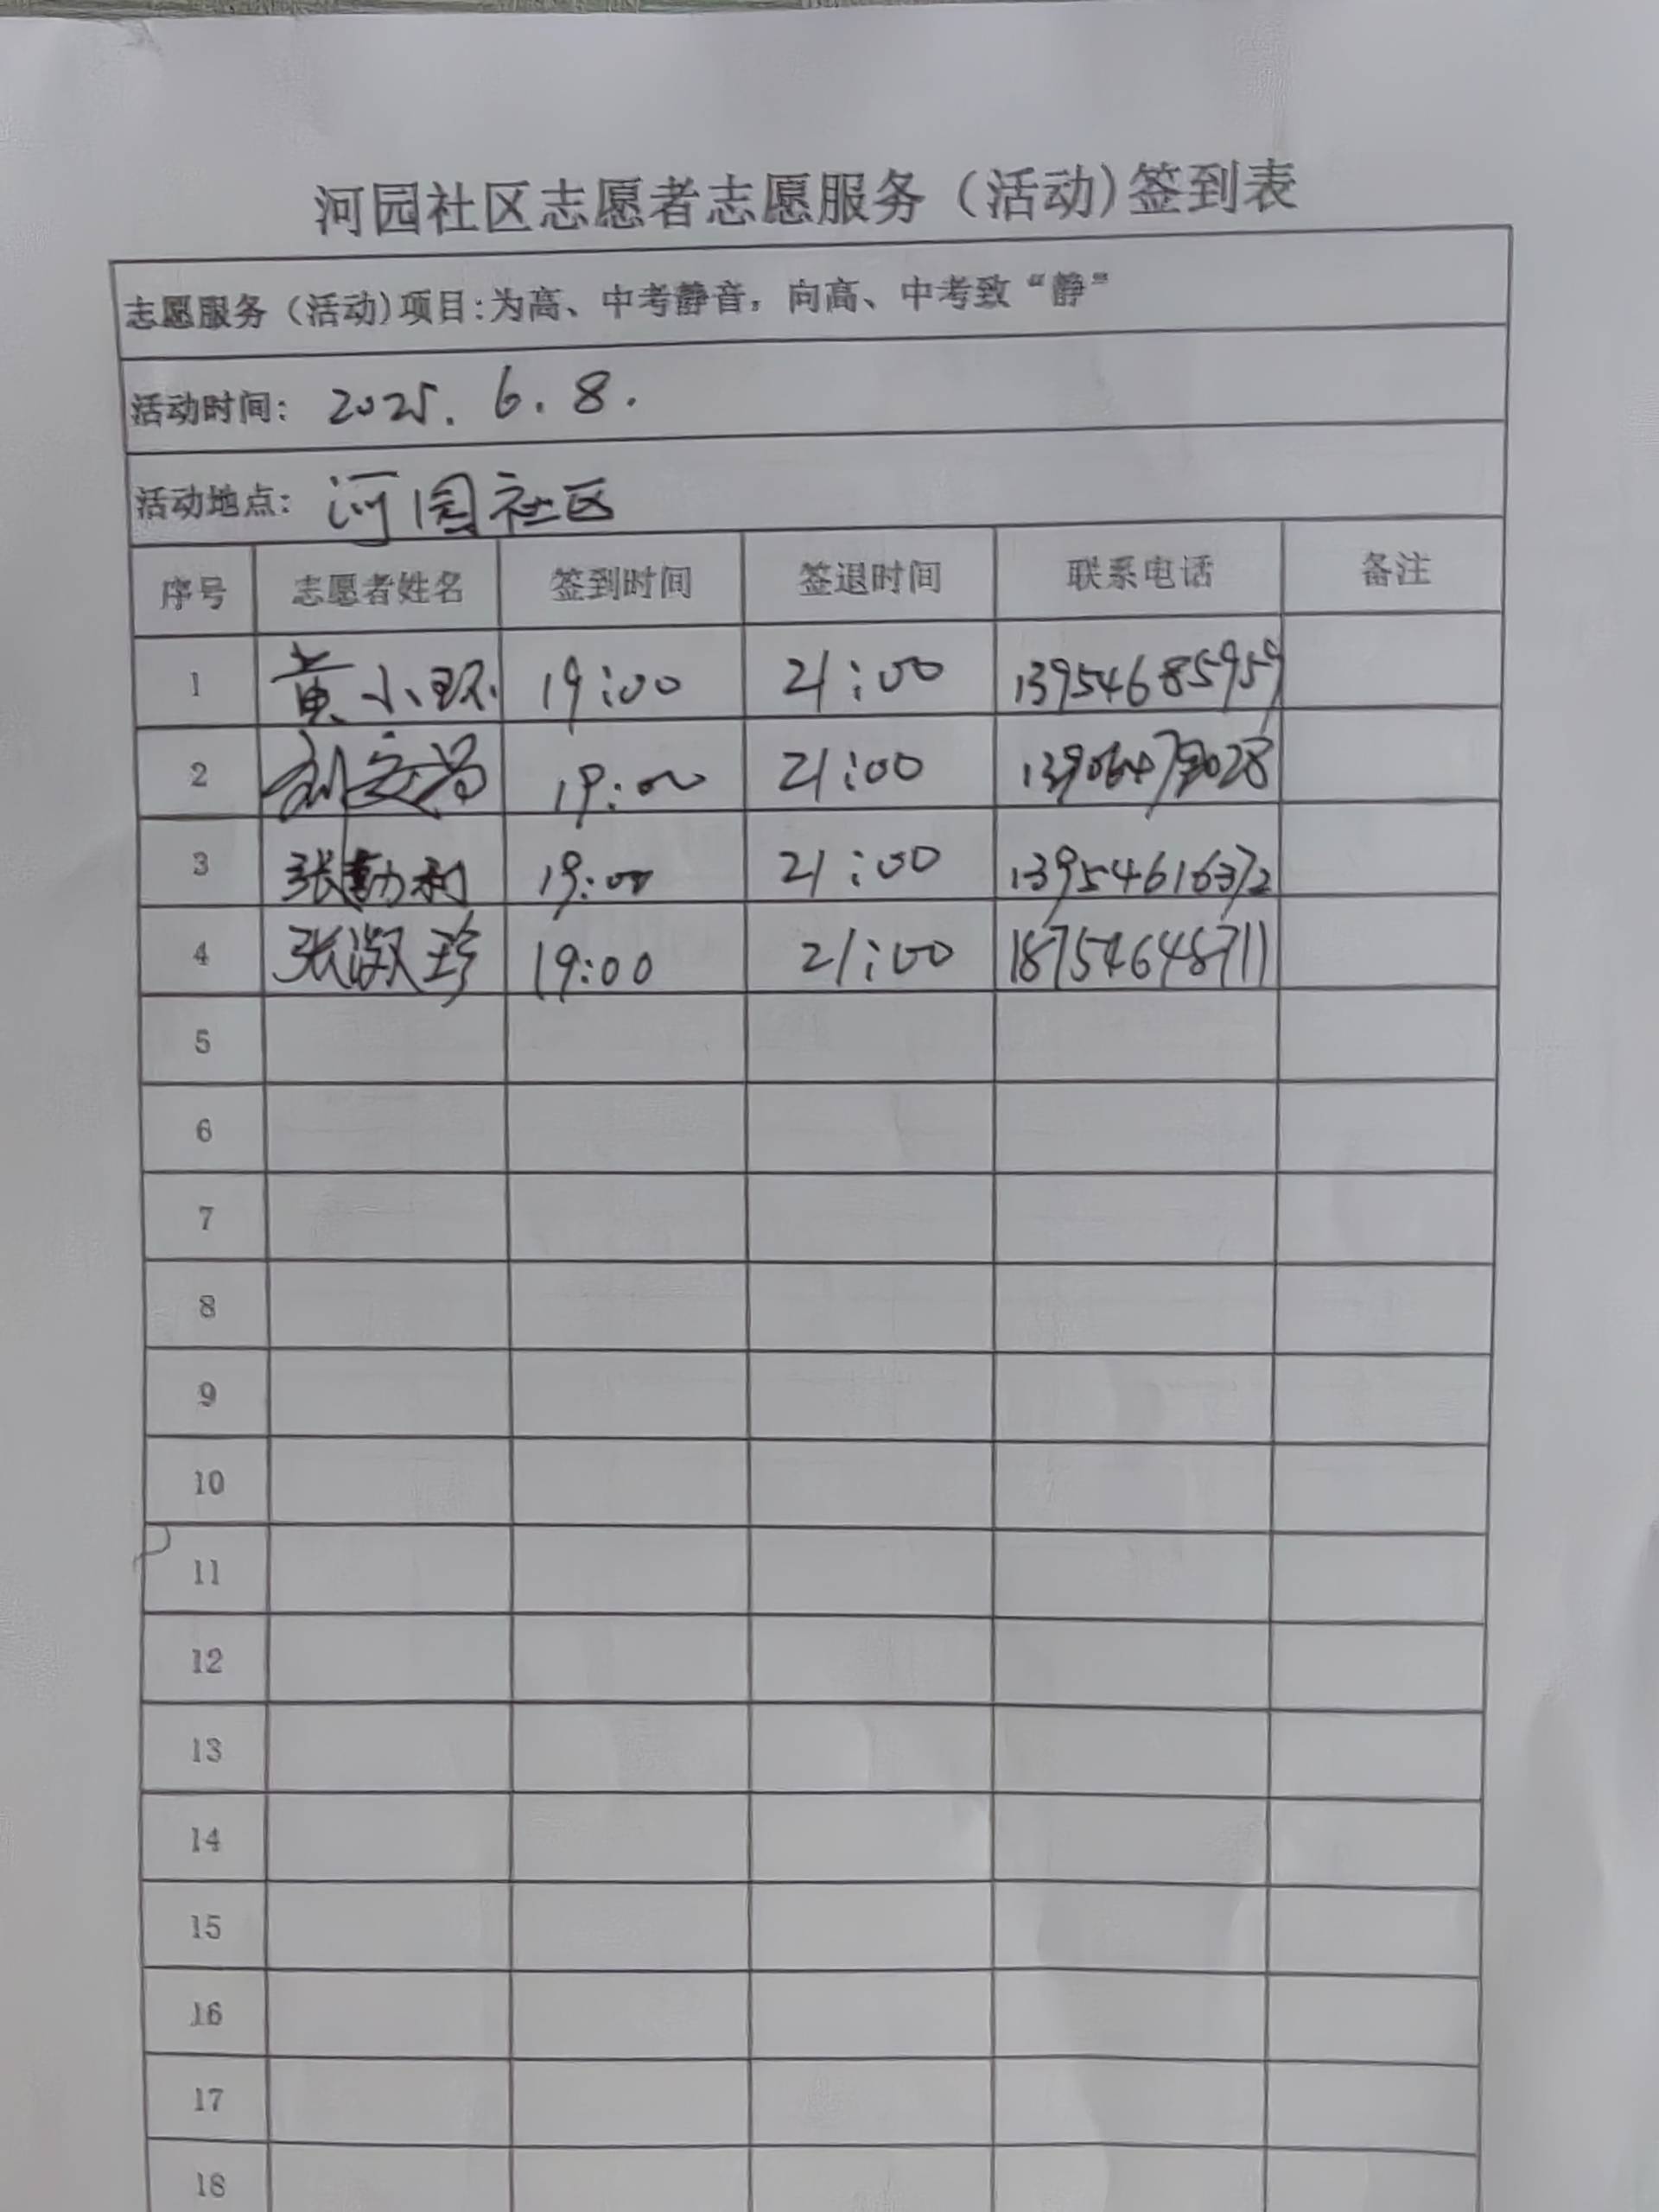 河园社区志愿者志愿服务（活动)签到表
志愿服务（活动)项目:为高、中考静音，向高、中考致“静”
活动时间： 2025. 6. 8.
活动地点： 河园社区
序号 志愿者姓名 签到时间 签退时间 联系电话 备注
1 黄小环 19:00 21:00 13954685959
2 19:00 21:00
3 张勤利 19:00 21:00 13954616372
4 张淑珍 19:00 21:00 18754648711
5
6
7
8
9
10
11
12
13
14
15
16
17
18